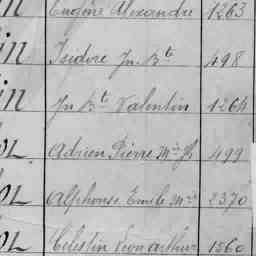 in Eugène Alexandre 1263
in Isidore Jn Bte 498
in Jn Bte Valentin 1264
ol. Adrien Pierre Mie Jh 499
ol. Alphonse Emile Mie 2370
ol Célestin Léon Arthur 1560